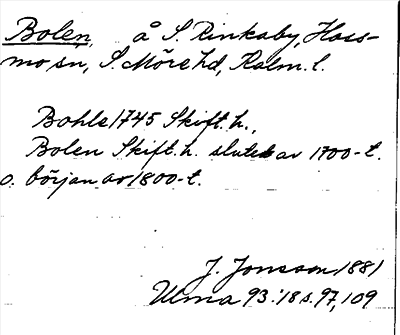 Bolen, å S. Rinkaby, Hoss-
mo sn, S. Möre hd, Kalm. l.
Bohle 1745 Skift. h.,
Bolen Skift. h. slutet av 1700-t.
o. början av 1800-t.
J. Jonsson 1881
Ulma 93:18 s. 97, 109